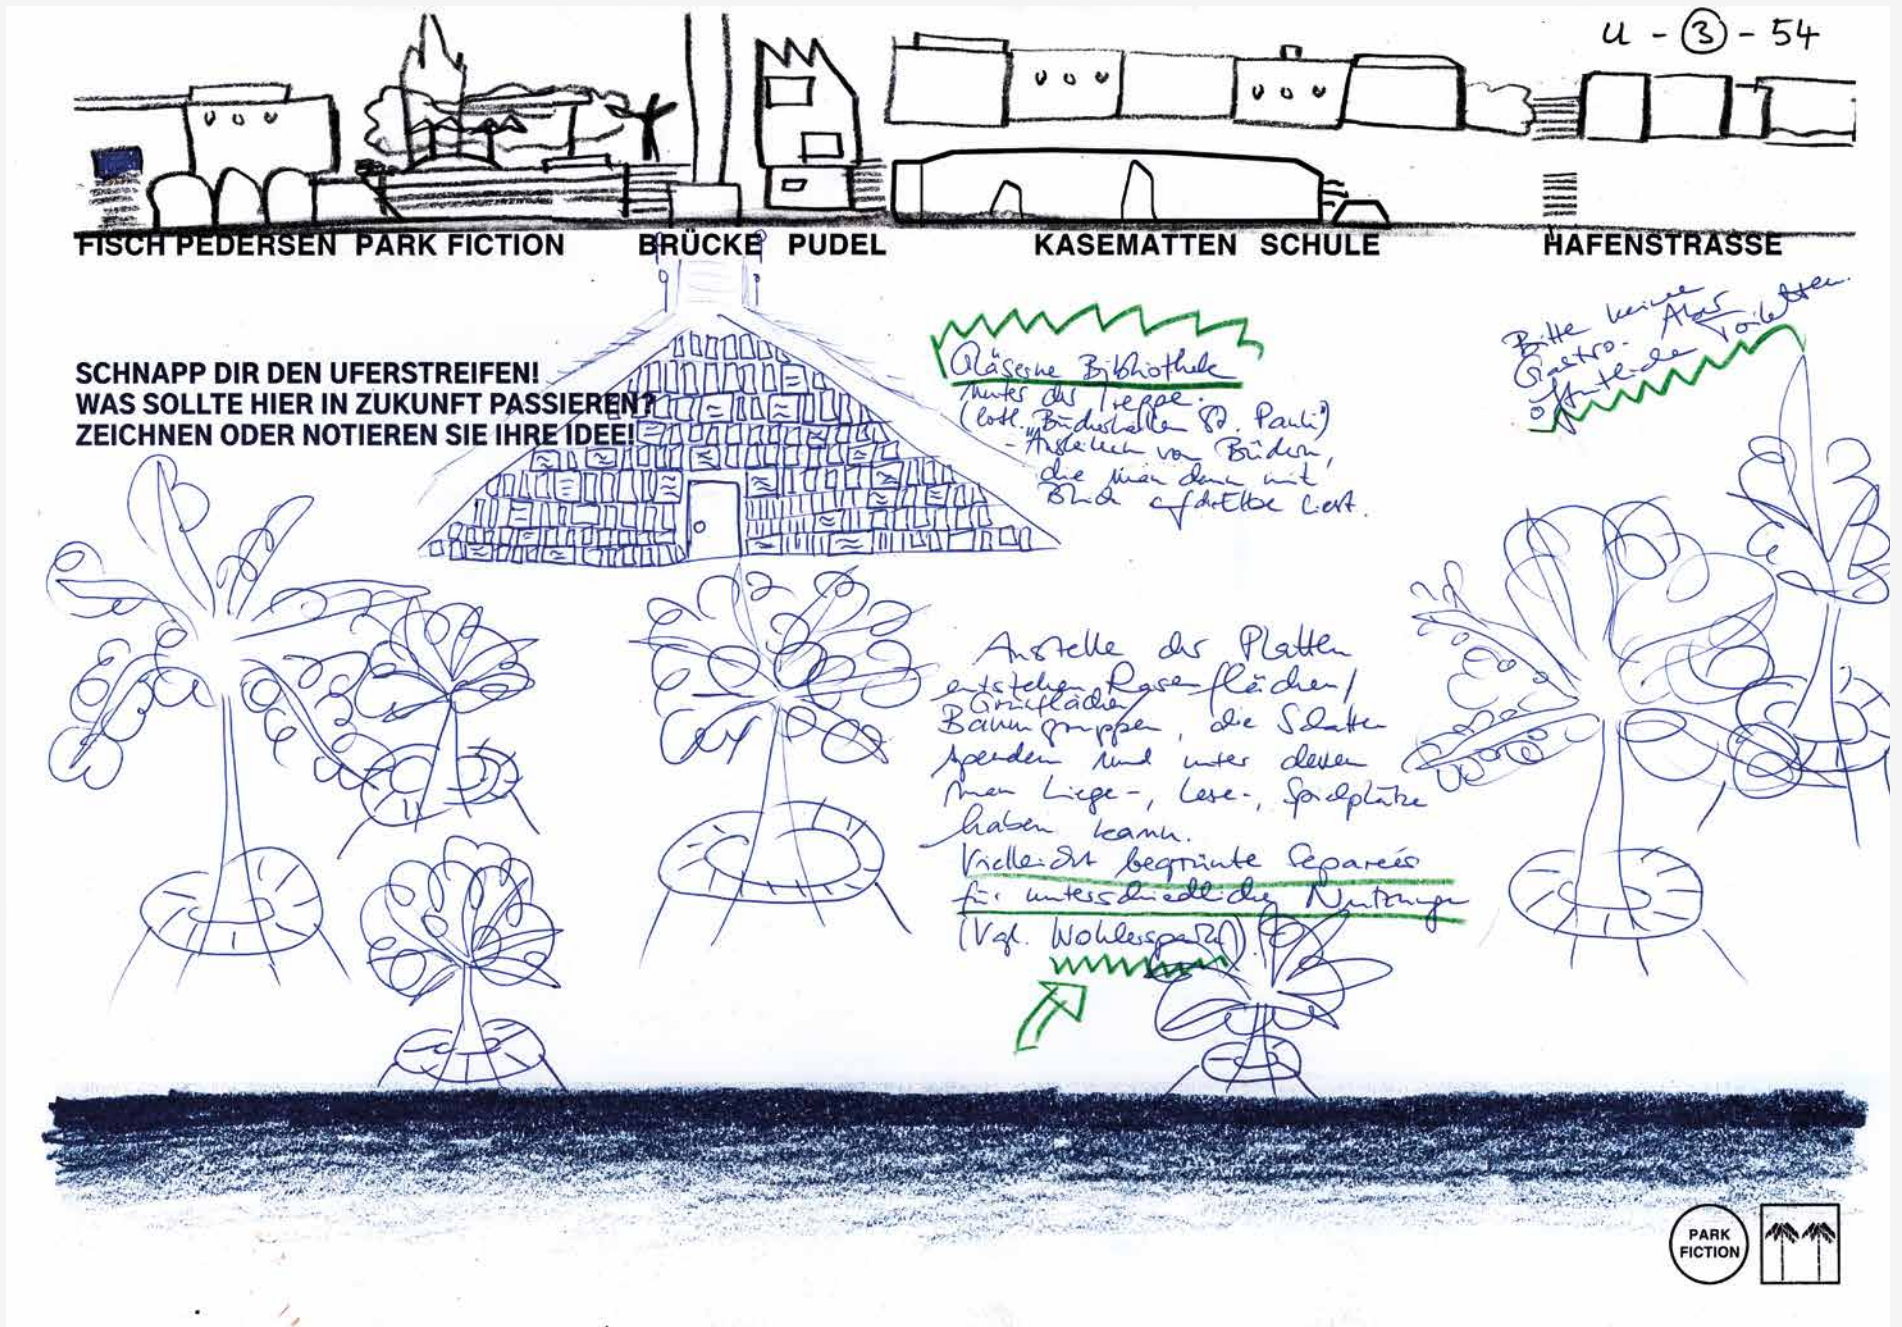 U - 3 - 54
FISCH PEDERSEN PARK FICTION BRÜCKE PUDEL KASEMATTEN SCHULE HAFENSTRASSE
SCHNAPP DIR DEN UFERSTREIFEN!
WAS SOLLTE HIER IN ZUKUNFT PASSIEREN?
ZEICHNEN ODER NOTIEREN SIE IHRE IDEE!
Gläserne Bibliothek
unter der Treppe.
"Bücherhallen St. Pauli")
- Ausleihen von Büchern,
die man dann mit
Blick auf die Elbe liest.
Bitte keine
Gastro. Aber
öffentliche Toiletten.
Anstelle der Platten
entstehen Rasenflächen/
Grünflächen/
Baumgruppen, die Schatten
spenden und unter denen
man Liege-, Lese-, Spielplätze
haben kann.
Vielleicht begrünte Separées
für unterschiedliche Nutzungen
(Vgl. Wohlerspark)
PARK
FICTION